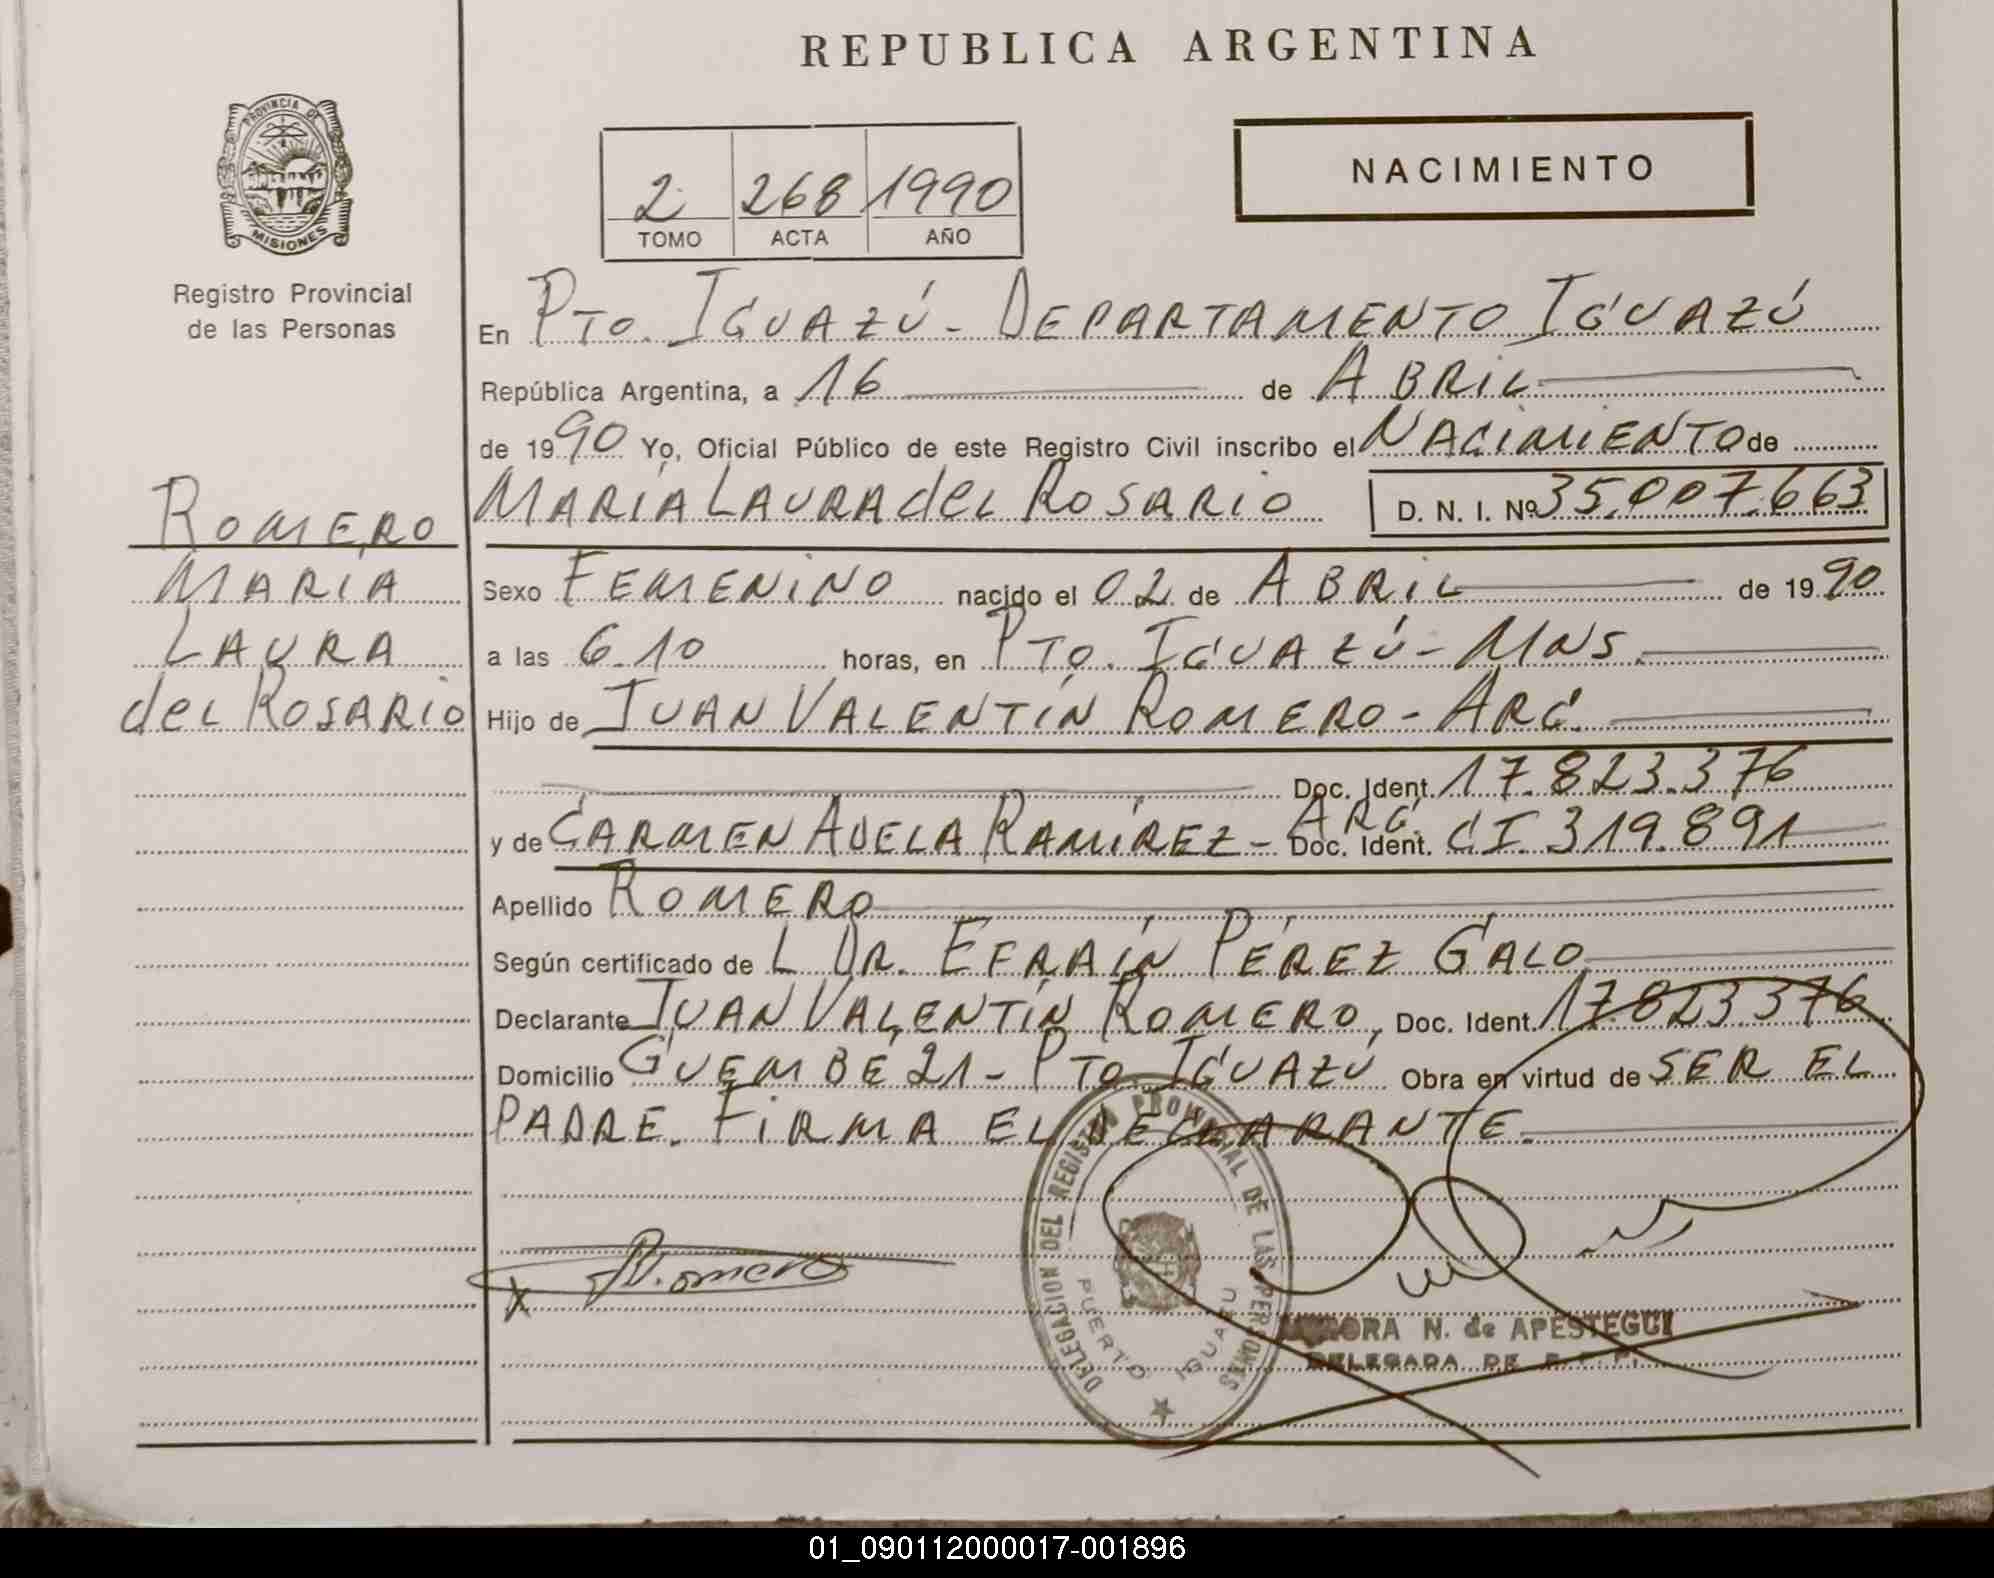 REPUBLICA ARGENTINA
PROVINCIA DE
MISIONES
Registro Provincial
de las Personas
2 268 1990
TOMO ACTA AÑO
NACIMIENTO
En PTO. IGUAZÚ - DEPARTAMENTO IGUAZÚ
República Argentina, a 16 de ABRIL
de 1990 Yo, Oficial Público de este Registro Civil inscribo el NACIMIENTO de
MARÍA LAURA del ROSARIO D. N. I. Nº 35.007.663
ROMERO
MARÍA
LAURA
del ROSARIO
Sexo FEMENINO nacido el 02 de ABRIL de 1990
a las 6.10 horas, en PTO. IGUAZÚ - MNS.
Hijo de JUAN VALENTÍN ROMERO - ARG.
Doc. Ident. 17.823.376
y de CARMEN ADELA RAMÍREZ - ARG. Doc. Ident. CI. 319.891
Apellido ROMERO
Según certificado de L DR. EFRAÍN PÉREZ GALO
Declarante JUAN VALENTÍN ROMERO, Doc. Ident. 17823376
Domicilio GUEMBÉ 21 - PTO IGUAZÚ Obra en virtud de SER EL
PADRE. FIRMA EL DECLARANTE.
X Romero
DELEGACION DEL REGISTRO PROVINCIAL DE LAS PERSONAS
PUERTO IGUAZU
N. de APESTEGUI
DELEGADA DE
01_090112000017-001896